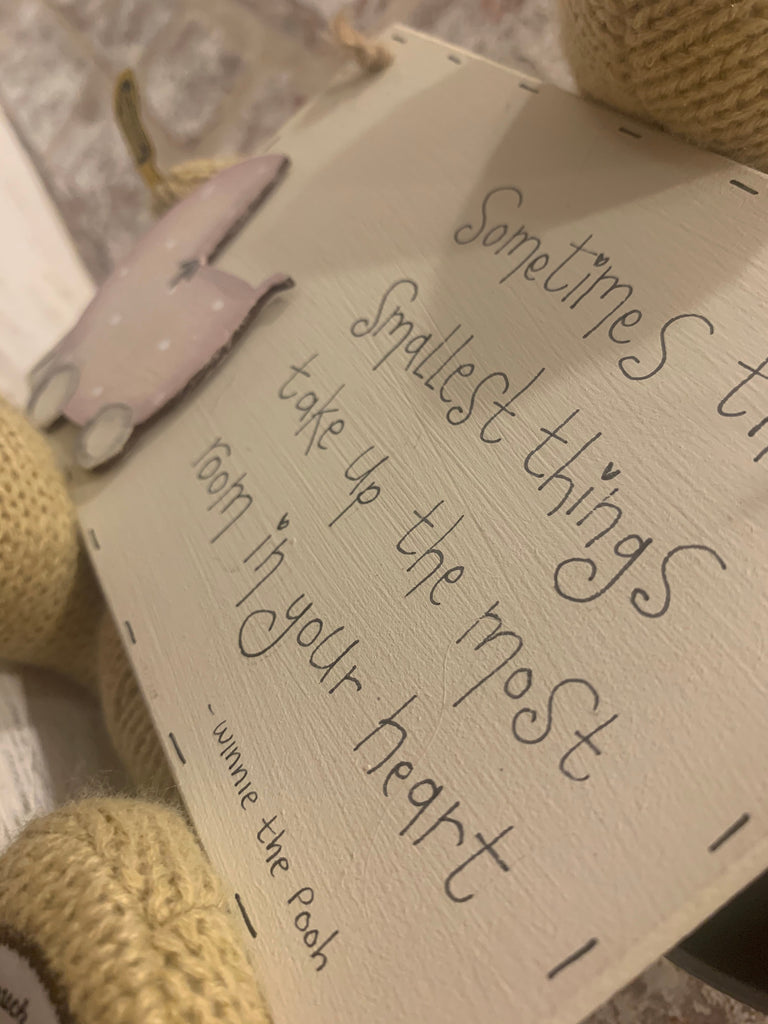 Sometimes th
Smallest things
take up the most
room in your heart
- winnie the Pooh